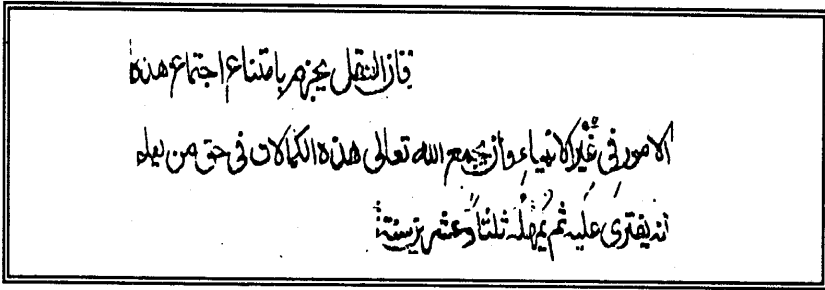 فان العقل يجزم بامتناع اجتماع هذه
الامور في غير الانبياء وان يجمع الله تعالى هذه الكمالات في حق من يعلم
انه يفترى عليه ثم يمهله ثلثا وعشرين سنة